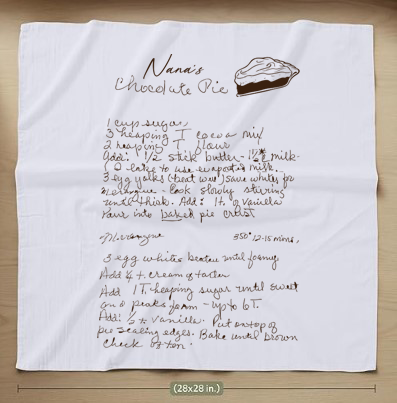 Nana's
Chocolate Pie
1 cup sugar,
3 heaping T cocoa mix
2 heaping T flour
Add: 1/2 stick butter - milk.
I like to use evaporated milk.
3 egg yolks (beat well) save whites for
Meringue - cook slowly stirring
until thick. Add: 1 t. of vanilla
Pour into baked pie crust
Meringue 350° 12-15 mins,
3 egg whites beaten until foamy
Add t. cream of tartar
Add 1 T. heaping sugar until sweet
and peaks form - up to 6T.
Add: 1/2 t. vanilla. Put on top of
pie sealing edges. Bake until brown
check often.
(28x28 in.)